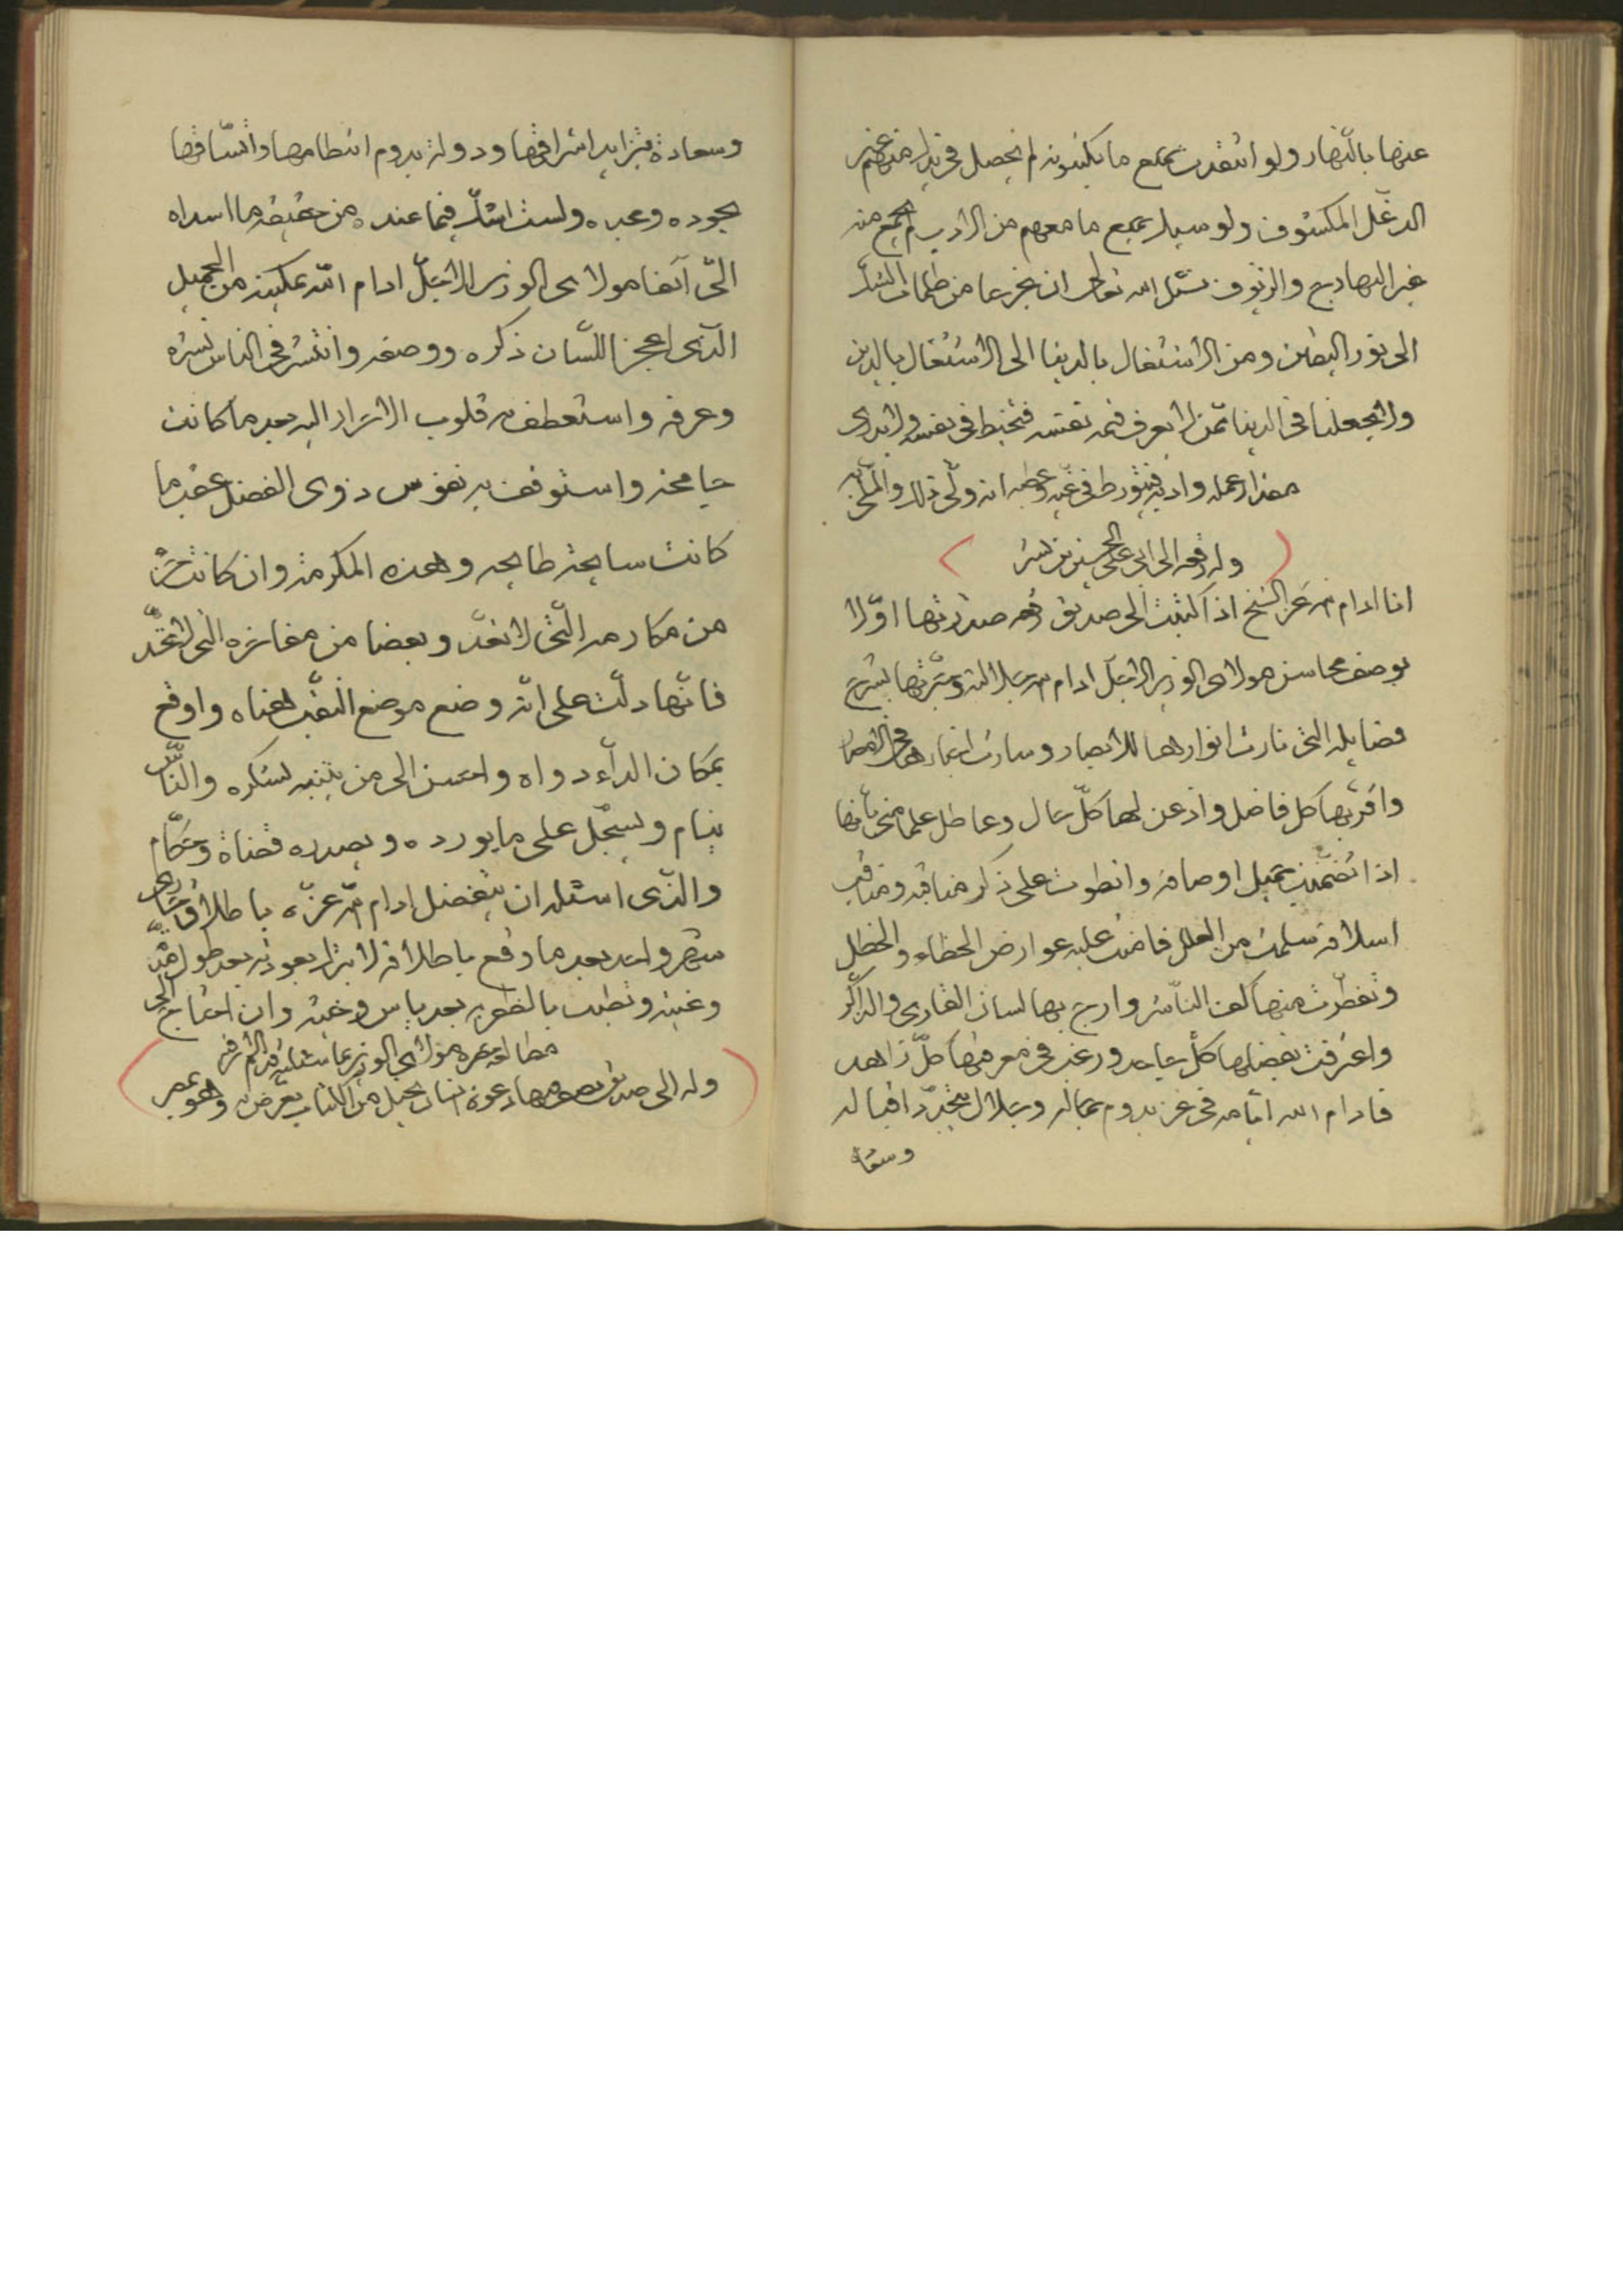 عنها بالنهار ولو انتقدت جميع ما يكتبونه لم يحصل في يدك منه غير
الدغل المكشوف ولو سبك جميع ما معهم من الادب لم يجمع منه
غير البهارج والزيوف نسئل الله تعالى ان يخرجنا من ظلمات الشك
الى نور اليقين ومن الاشتغال بالدنيا الى الاشتغال بالدين
ولا يجعلنا في الدنيا ممن لا يعرف قيمة نفسه فتخبط في نفسه ولا يدرى
مقدار عمله وادبه فيتورط في غيه انه ولى ذلك والملى به
وله رقعة الى ابى على الحسين بن بشر
انا ادام الله عز الشيخ اذا كتبت الى صديق رقعة صدرتها اولا
بوصف محاسن مولاى الوزير الاجل ادام الله جلالته بشرح
فضايله التى نارت انوارها للابصار وسارت اخبارها فى الامصار
واقر بها كل فاضل واذعن لها كل حال وعاطل علما منى بانها
اذا تضمنت جميل اوصافه وانطوت على ذكر مناقبه ومناقب
اسلافه سلمت من العلل عليه عوارض الخطاء والخطل
وتعطرت منها كف الناشر وارج بها لسان القارى والذاكر
واعترفت بفضلها كل جاحد ورغب فى معرفتها كل زاهد
فادام الله ايامه فى عز يدوم جماله وجلال يتجدد اقباله
وسعادة
وسعادة يتزايد اشراقها ودولة يدوم انتظامها واتساقها
بجوده ولست اشك فيما عنده من حقيقة ما اسداه
الى آنفا مولاى الوزير الاجل ادام الله تمكينه من الجميل
الذى اعجز اللسان ذكره ووصفه وانتشر فى الناس نشره
وعرفه واستعطف به قلوب الاحرار اليه بعد ما كانت
جامحة واستوقف به نفوس ذوى الفضل عقيب ما
كانت طامحة وهذه المكرمة وان كانت
من مكارمه التى لا تعد وبعضا من مفاخره التى لا تحد
فانها دلت على انه وضع موضع النقب هناه واوقع
بمكان الداء دواه واحسن الى من ينتبه لشكره والناس
نيام ويسجل على ما يورده ويصدره قضاة وحكام
والذى اسئله ان يتفضل ادام الله عزه باطلاق
شهر واحد بعد ما وقع باطلاقه بعد طول
وغيبة بعد ياس وخيبة وان احتاج الى
مولاى الوزير
وله الى صديق